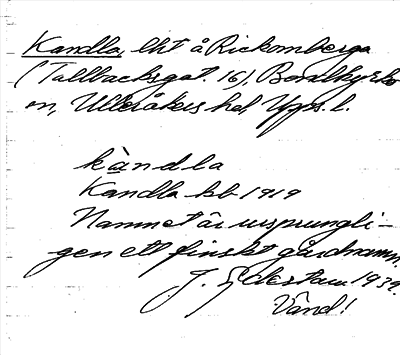 Kandla, lht å Rickomberga
(Tallbacksgat. 16), Bondkyrko
sn, Ulleråkers hd, Upps. l.
kandla
Kandla kb 1919
Namnet är ursprungli-
gen ett finskt gårdnamn.
J. 1939.
Vänd!